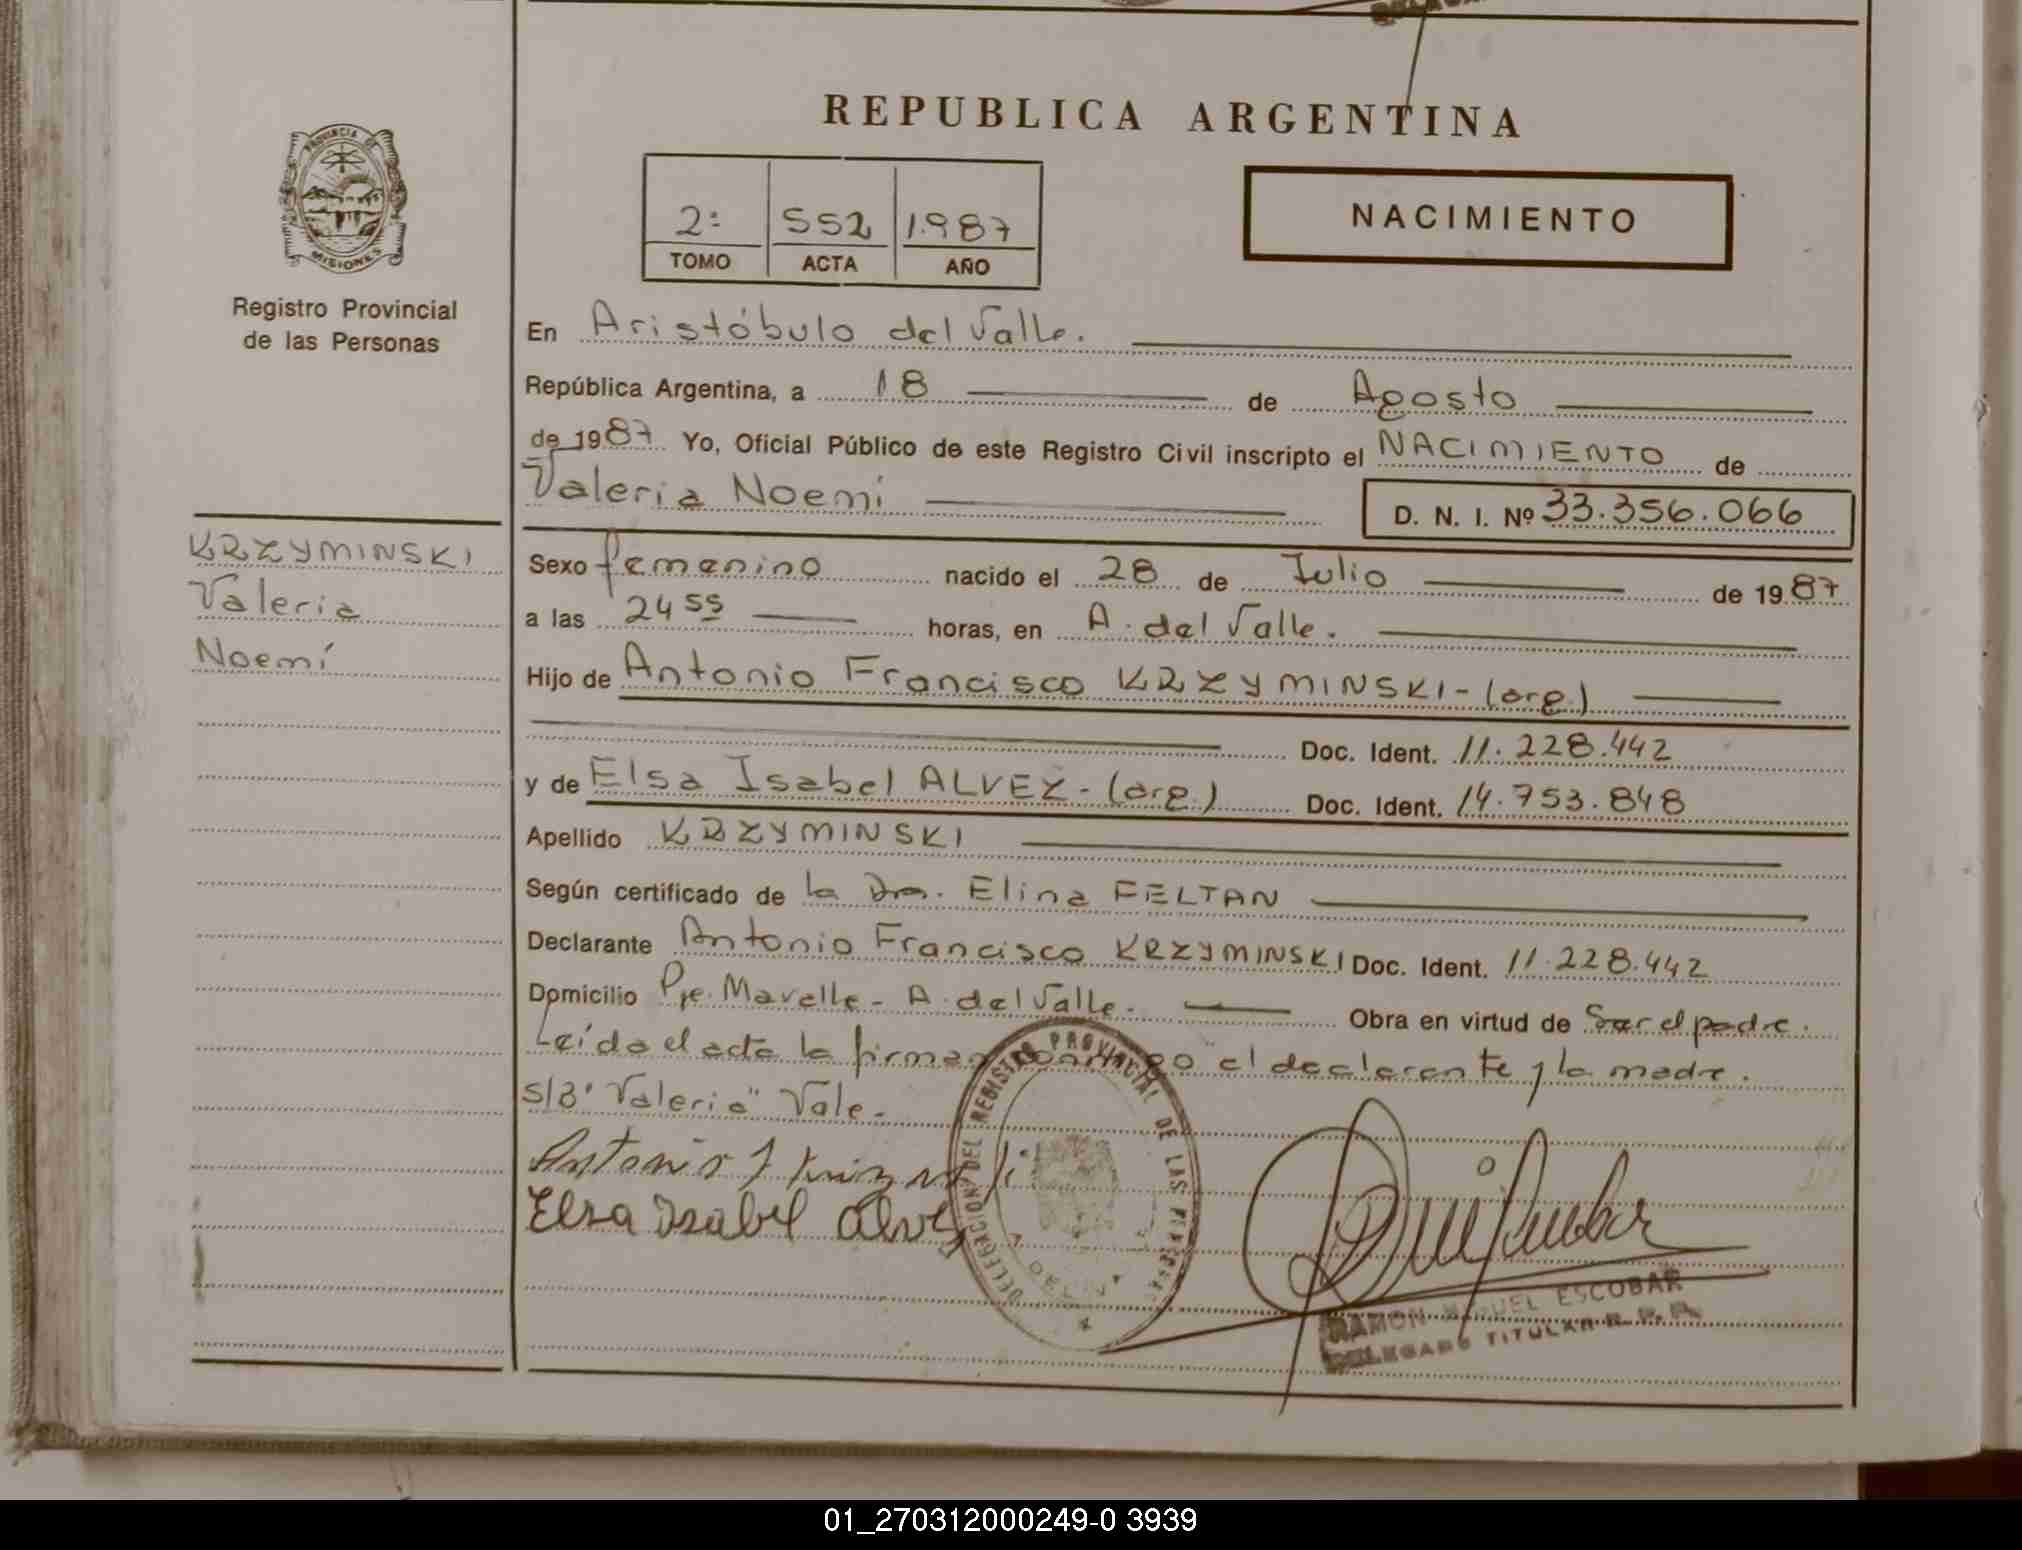 REPUBLICA ARGENTINA
PROVINCIA DE
MISIONES
Registro Provincial
de las Personas
2:
552
1.987
TOMO
ACTA
AÑO
NACIMIENTO
En Aristóbulo del Valle.
República Argentina, a 18 de Agosto
de 1987 Yo, Oficial Público de este Registro Civil inscripto el NACIMIENTO de
Valeria Noemí
D. N. I. Nº 33.356.066
KRZYMINSKI
Valeria
Noemí
Sexo femenino nacido el 28 de Julio de 1987
a las 24 55 horas, en A. del Valle.
Hijo de Antonio Francisco KRZYMINSKI - (arg.)
Doc. Ident. 11.228.442
y de Elsa Isabel ALVEZ - (arg.) Doc. Ident. 14.753.848
Apellido KRZYMINSKI
Según certificado de la Dra. Elina FELTAN
Declarante Antonio Francisco KRZYMINSKI Doc. Ident. 11.228.442
Domicilio Pje. Mavalle - A. del Valle. Obra en virtud de Ser el padre.
Leída el acta la firman conmigo el declarante y la madre.
S/B "Valeria" Vale.
Antonio
Elsa Isabel Alvez
DELEGACION DEL REGISTRO PROVINCIAL DE LAS PERSONAS
RAMON MIGUEL ESCOBAR
DELEGADO TITULAR R. P. P.
01_270312000249-0 3939